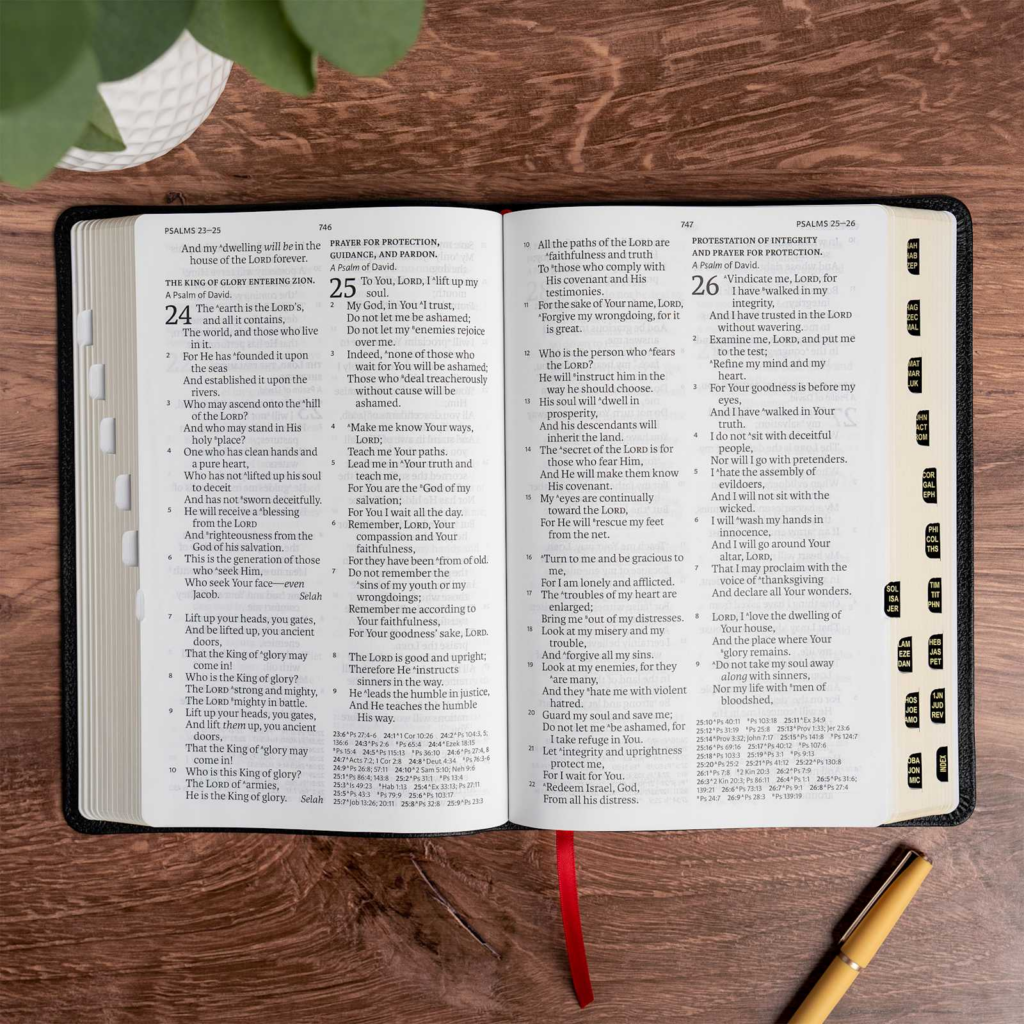 PSALMS 23—25
746
And my ᴬdwelling will be in the
house of the LORD forever.
THE KING OF GLORY ENTERING ZION.
A Psalm of David.
24 The ᴬearth is the LORD's,
and all it contains,
The world, and those who live
in it.
2 For He has ᴬfounded it upon
the seas
And established it upon the
rivers.
3 Who may ascend onto the ᴬhill
of the LORD?
And who may stand in His
holy ᴬplace?
4 One who has clean hands and
a pure heart,
Who has not ᴬlifted up his soul
to deceit
And has not ᴬsworn deceitfully.
5 He will receive a ᴬblessing
from the LORD
And ᴬrighteousness from the
God of his salvation.
6 This is the generation of those
who ᴬseek Him,
Who seek Your face—even
Jacob. Selah
7 Lift up your heads, you gates,
And be lifted up, you ancient
doors,
That the King of ᴬglory may
come in!
8 Who is the King of glory?
The LORD ᴬstrong and mighty,
The LORD ᴬmighty in battle.
9 Lift up your heads, you gates,
And lift them up, you ancient
doors,
That the King of ᴬglory may
come in!
10 Who is this King of glory?
The LORD of ᴬarmies,
He is the King of glory. Selah
PRAYER FOR PROTECTION,
GUIDANCE, AND PARDON.
A Psalm of David.
25 To You, LORD, I ᴬlift up my
soul.
2 My God, in You ᴬI trust,
Do not let me be ashamed;
Do not let my ᴮenemies rejoice
over me.
3 Indeed, ᴬnone of those who
wait for You will be ashamed;
Those who ᴮdeal treacherously
without cause will be
ashamed.
4 ᴬMake me know Your ways,
LORD;
Teach me Your paths.
5 Lead me in ᴬYour truth and
teach me,
For You are the ᴮGod of my
salvation;
For You I wait all the day.
6 Remember, LORD, Your
compassion and Your
faithfulness,
For they have been ᴬfrom of old.
7 Do not remember the
ᴬsins of my youth or my
wrongdoings;
Remember me according to
Your faithfulness,
For Your goodness' sake, LORD.
8 The LORD is good and upright;
Therefore He ᴬinstructs
sinners in the way.
9 He ᴬleads the humble in justice,
And He teaches the humble
His way.
747
PSALMS 25—26
10 All the paths of the LORD are
ᴬfaithfulness and truth
To ᴮthose who comply with
His covenant and His
testimonies.
11 For the sake of Your name, LORD,
ᴬForgive my wrongdoing, for it
is great.
12 Who is the person who ᴬfears
the LORD?
He will ᴮinstruct him in the
way he should choose.
13 His soul will ᴬdwell in
prosperity,
And his descendants will
inherit the land.
14 The ᴬsecret of the LORD is for
those who fear Him,
And He will make them know
His covenant.
15 My ᴬeyes are continually
toward the LORD,
For He will ᴮrescue my feet
from the net.
16 ᴬTurn to me and be gracious to
me,
For I am lonely and afflicted.
17 The ᴬtroubles of my heart are
enlarged;
Bring me ᴮout of my distresses.
18 Look at my misery and my
trouble,
And ᴬforgive all my sins.
19 Look at my enemies, for they
ᴬare many,
And they ᴮhate me with violent
hatred.
20 Guard my soul and save me;
Do not let me ᴬbe ashamed, for
I take refuge in You.
21 Let ᴬintegrity and uprightness
protect me,
For I wait for You.
22 ᴬRedeem Israel, God,
From all his distress.
PROTESTATION OF INTEGRITY
AND PRAYER FOR PROTECTION.
A Psalm of David.
26 ᴬVindicate me, LORD, for
I have ᴮwalked in my
integrity,
And I have trusted in the LORD
without wavering.
2 Examine me, LORD, and put me
to the test;
ᴬRefine my mind and my
heart.
3 For Your goodness is before my
eyes,
And I have ᴬwalked in Your
truth.
4 I do not ᴬsit with deceitful
people,
Nor will I go with pretenders.
5 I ᴬhate the assembly of
evildoers,
And I will not sit with the
wicked.
6 I will ᴬwash my hands in
innocence,
And I will go around Your
altar, LORD,
7 That I may proclaim with the
voice of ᴬthanksgiving
And declare all Your wonders.
8 LORD, I ᴬlove the dwelling of
Your house,
And the place where Your
ᴮglory remains.
9 ᴬDo not take my soul away
along with sinners,
Nor my life with ᴮmen of
bloodshed,
HAG
ZEC
MAL
MAT
MAR
LUK
JHN
ACT
ROM
COR
GAL
EPH
PHI
COL
THS
SOL
ISA
JER
TIM
TIT
PHN
LAM
EZE
DAN
HEB
JAS
PET
HOS
JOE
AMO
1JN
JUD
REV
OBA
JON
MIC
INDEX